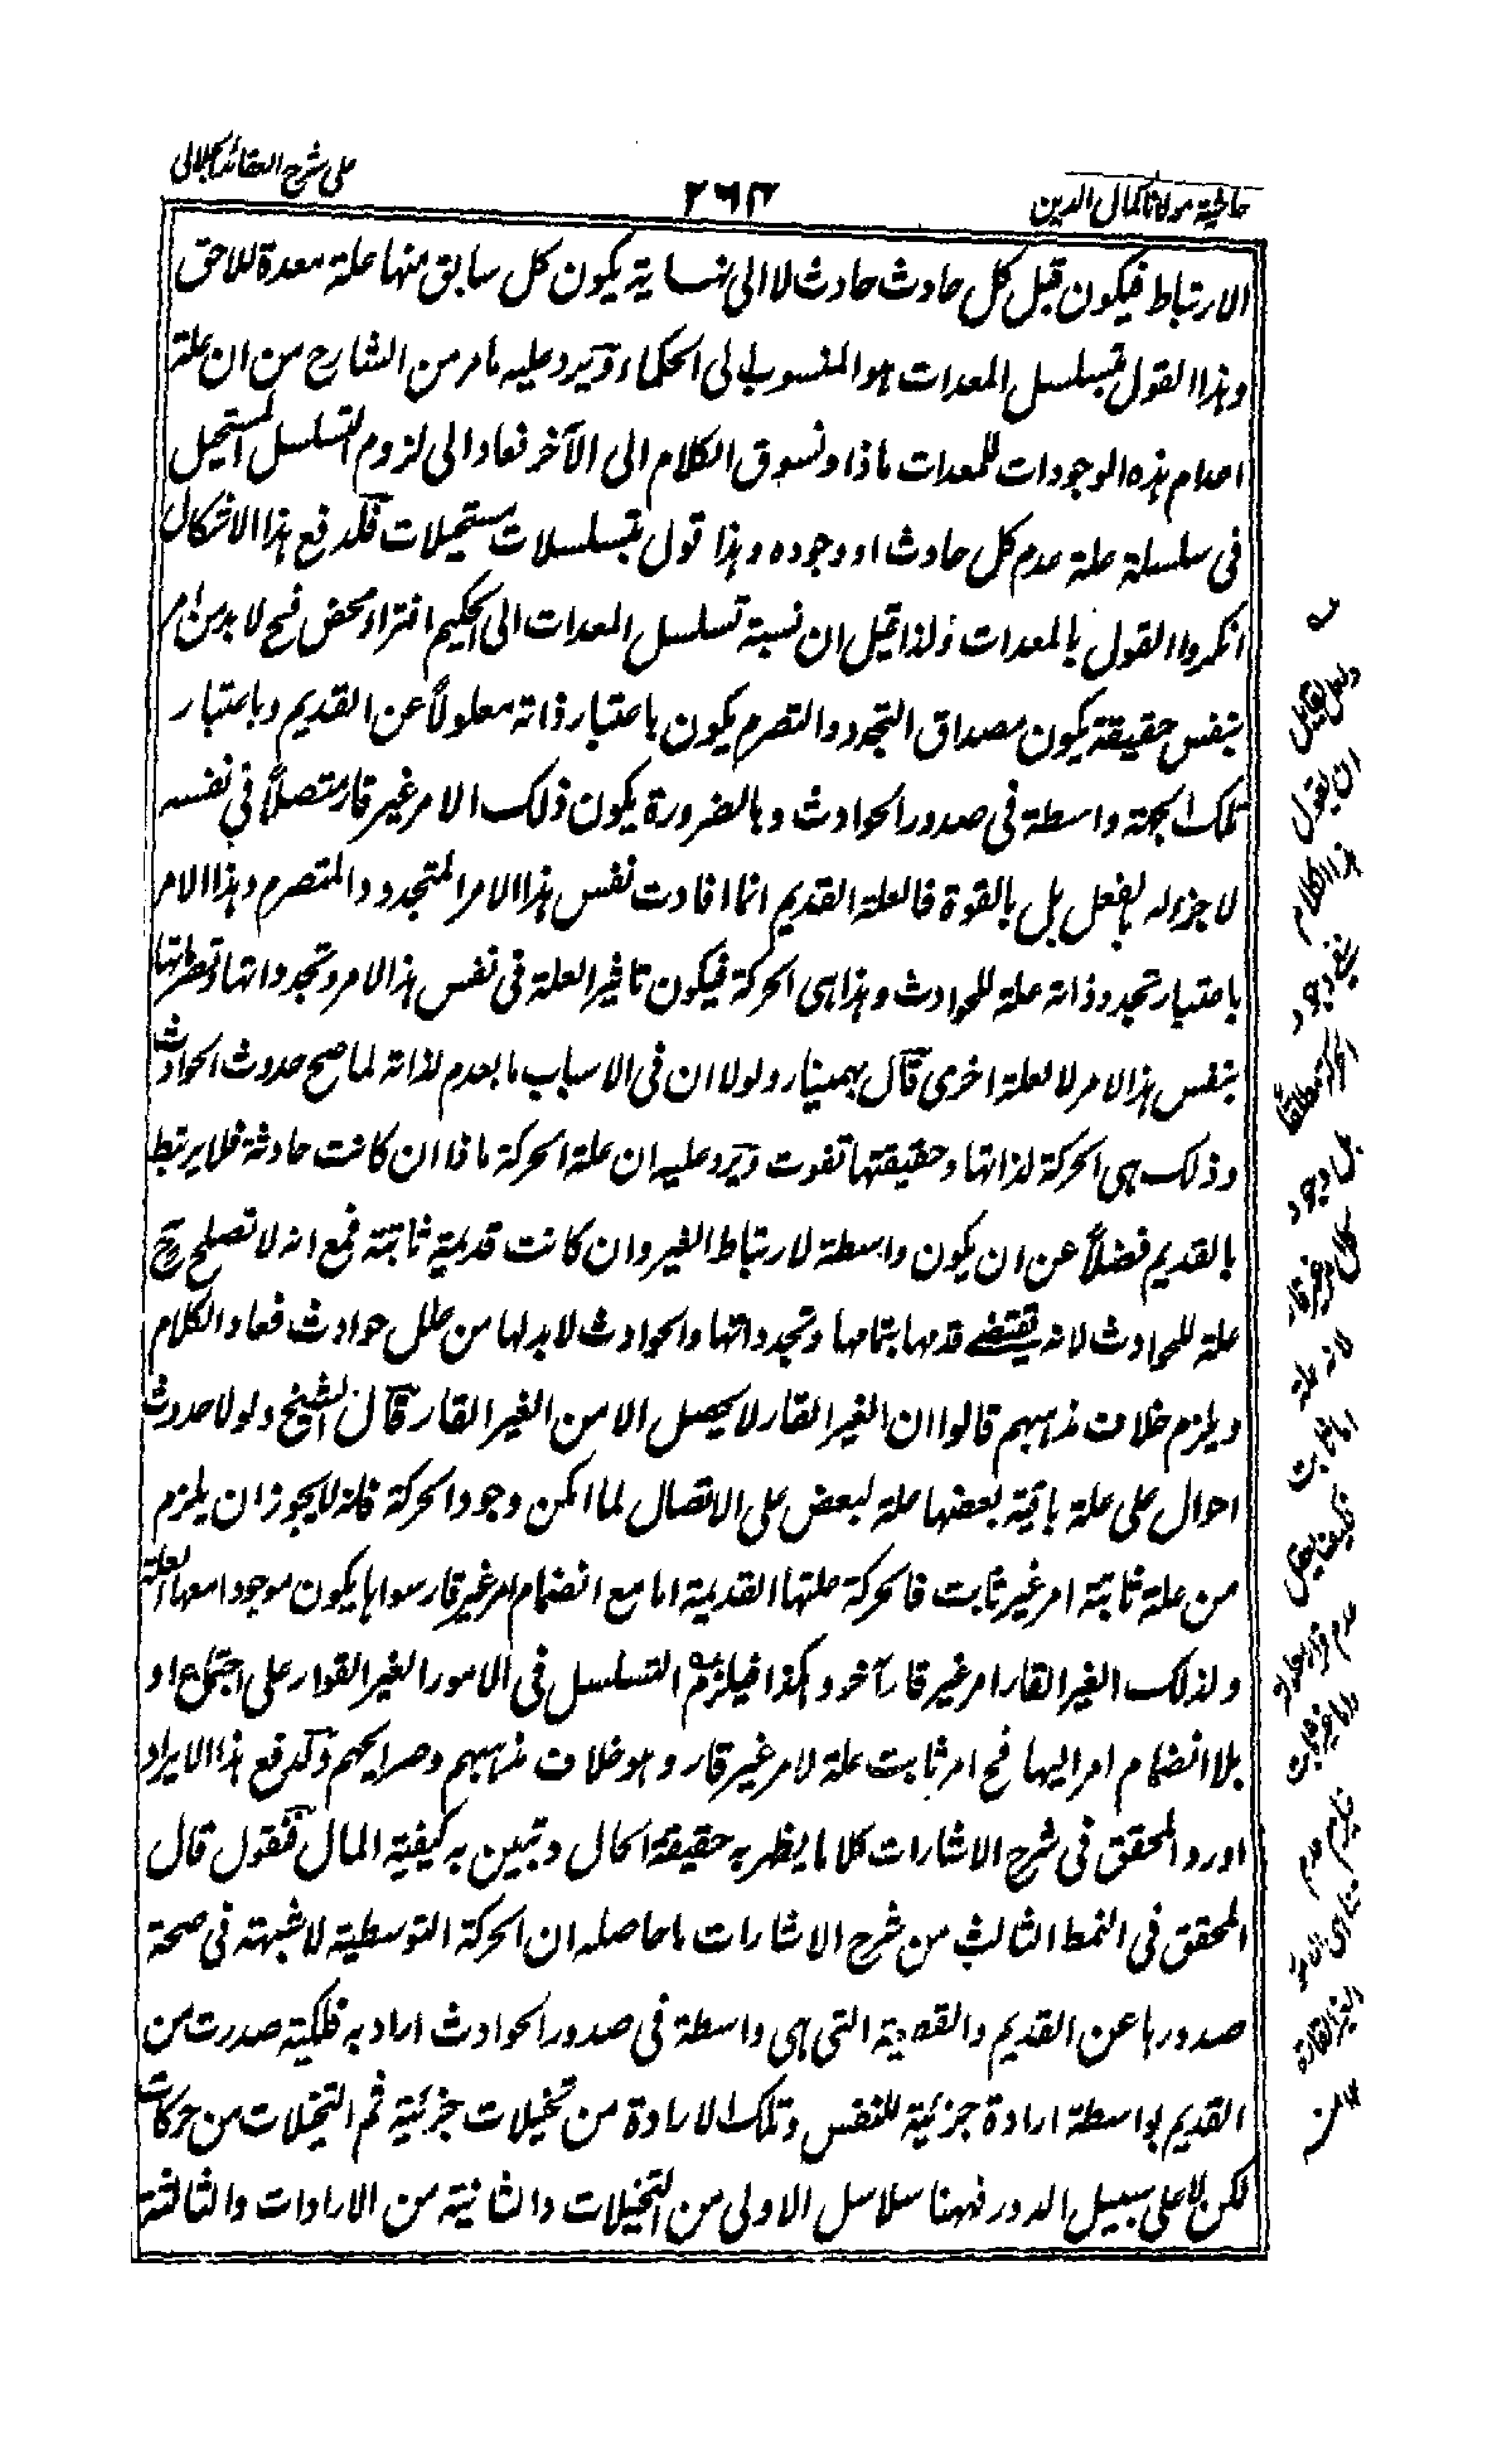 حاشية مولانا كمال الدين
٢٦٣
على شرح العقائد الجلالى
الارتباط فيكون قبل كل حادث حادث لا الى نهاية يكون كل سابق منها علة معدة للاحق
وهذا القول بتسلسل المعدات هو المنسوب الى الحكماء ويرد عليه ما مر من الشارح من ان علة
اعدام هذه الوجودات للمعدات ماذا ونسوق الكلام الى الآخر فعاد الى لزوم التسلسل المستحيل
فى سلسلة علة عدم كل حادث او وجوده وهذا قول بتسلسلات مستحيلات فلدفع هذا الاشكال
انكروا القول بالمعدات ولذا قيل ان نسبة تسلسل المعدات الى الحكيم افتراء محض فح لا بد من امر
بنفس حقيقة يكون مصداق التجدد والتصرم يكون باعتبار ذاته معلولاً عن القديم وباعتبار
تلك الجهة واسطة فى صدور الحوادث وبالضرورة يكون ذلك الامر غير قار متصلاً فى نفسه
لا جزء له بالفعل بل بالقوة فالعلة القديم انما افادت نفس هذا الامر المتجدد والمتصرم وهذا الامر
باعتبار تجدد ذاته علة للحوادث وهذا هى الحركة فيكون تاثير العلة فى نفس هذا الامر وتجدداتها وتصرماتها
بنفس هذا الامر لا لعلة اخرى قال بهمنيار ولولا ان فى الاسباب ما يعدم لذاته لما صح حدوث الحوادث
وذلك هى الحركة لذاتها وحقيقتها تفوت ويرد عليه ان علة الحركة ماذا ان كانت حادثة فلا يرتبط
بالقديم فضلاً عن ان يكون واسطة لارتباط الغير وان كانت قديمة ثابتة فمع انه لا تصلح ح
علة للحوادث لانه يقتضے قدمها بتمامها وتجدداتها والحوادث لا بد لها من علل حوادث فعاد الكلام
ويلزم خلاف مذهبهم قالوا ان الغير القار لا يحصل الا من الغير القار قال الشيخ ولولا حدوث
احوال على علة باقية بعضها علة لبعض على الاتصال لما امكن وجود الحركة فانه لا يجوز ان يلزم
من علة ثابتة امر غير ثابت فالحركة علتها القديمة اما مع انضمام امر غير قار سواها يكون موجودا معها العلة
ولذلك الغير القار امر غير قار آخر وهكذا فيلزم التسلسل فى الامور الغير القوار على اجتماع او
بلا انضمام امر اليها فح امر ثابت علة لامر غير قار وهو خلاف مذهبهم وصرايحهم ولدفع هذا الايراد
اورد المحقق فى شرح الاشارات كلاما يظهر به حقيقة الحال وتبين به كيفية المال فنقول قال
المحقق فى النمط الثالث من شرح الاشارات ما حاصله ان الحركة التوسطية لا شبهة فى صحة
صدورها عن القديم والقطعية التى هى واسطة فى صدور الحوادث اراد به فلكية صدرت من
القديم بواسطة ارادة جزئية للنفس وتلك الارادة من تخيلات جزئية ثم التخيلات من حركات
لكن لا على سبيل الدور فههنا سلاسل الاولى من التخيلات والثانية من الارادات والثالثة
ان يقول
هذا الكلام
بل وجود
لانه علة